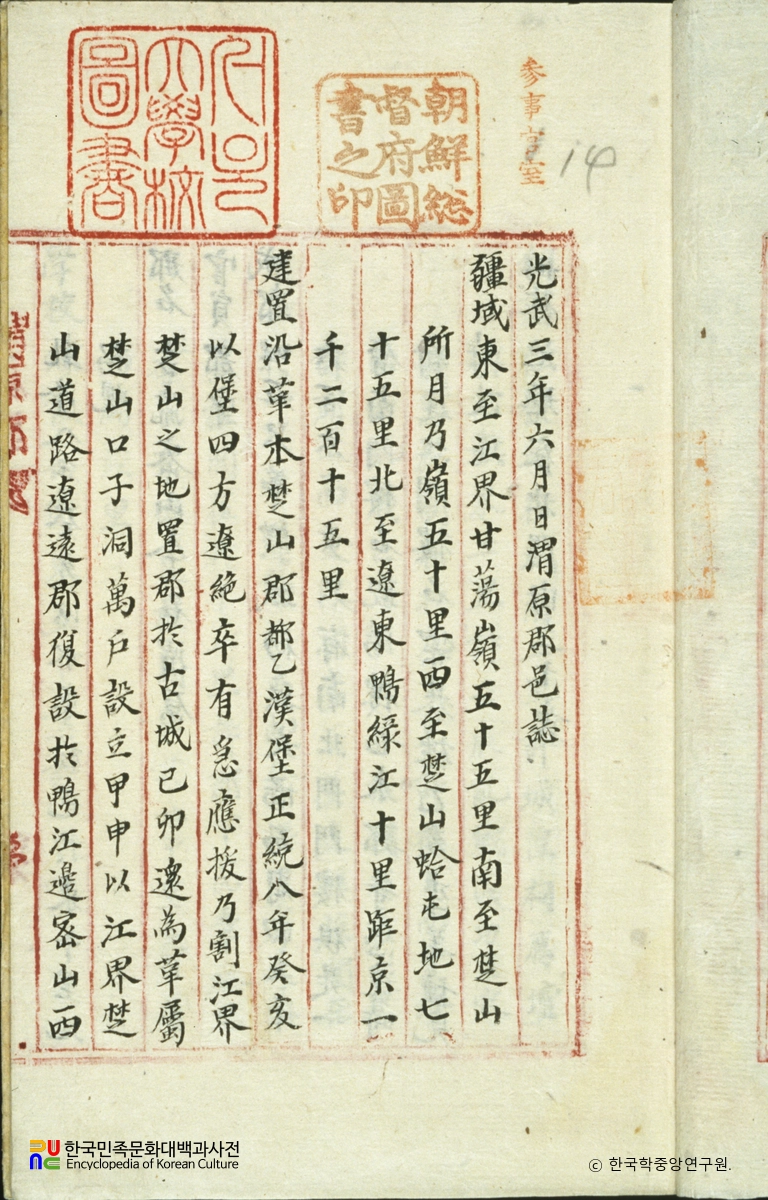 光武三年六月日渭原郡邑誌
疆域東至江界甘蕩嶺五十五里南至楚山
所月乃嶺五十里西至楚山蛤屯地七
十五里北至遼東鴨綠江十里距京一
千二百十五里
建置沿革本楚山郡都乙漢堡正統八年癸亥
以堡四方遼絶卒有急應援乃割江界
楚山之地置郡於古城己卯還為革屬
楚山口子洞萬戶設立甲申以江界楚
山道路遼遠郡復設於鴨江邊密山西
參事官室
14
朝鮮總
督府圖
書之印
서울
大學校
圖書
한국민족문화대백과사전
Encyclopedia of Korean Culture
© 한국학중앙연구원.